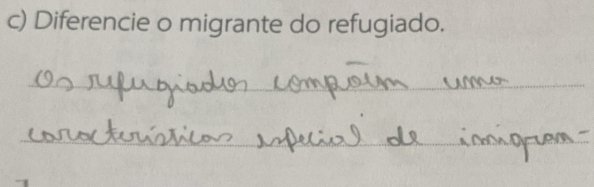 c) Diferencie o migrante do refugiado.
Os refugiados compõem uma
características especial de imigran-